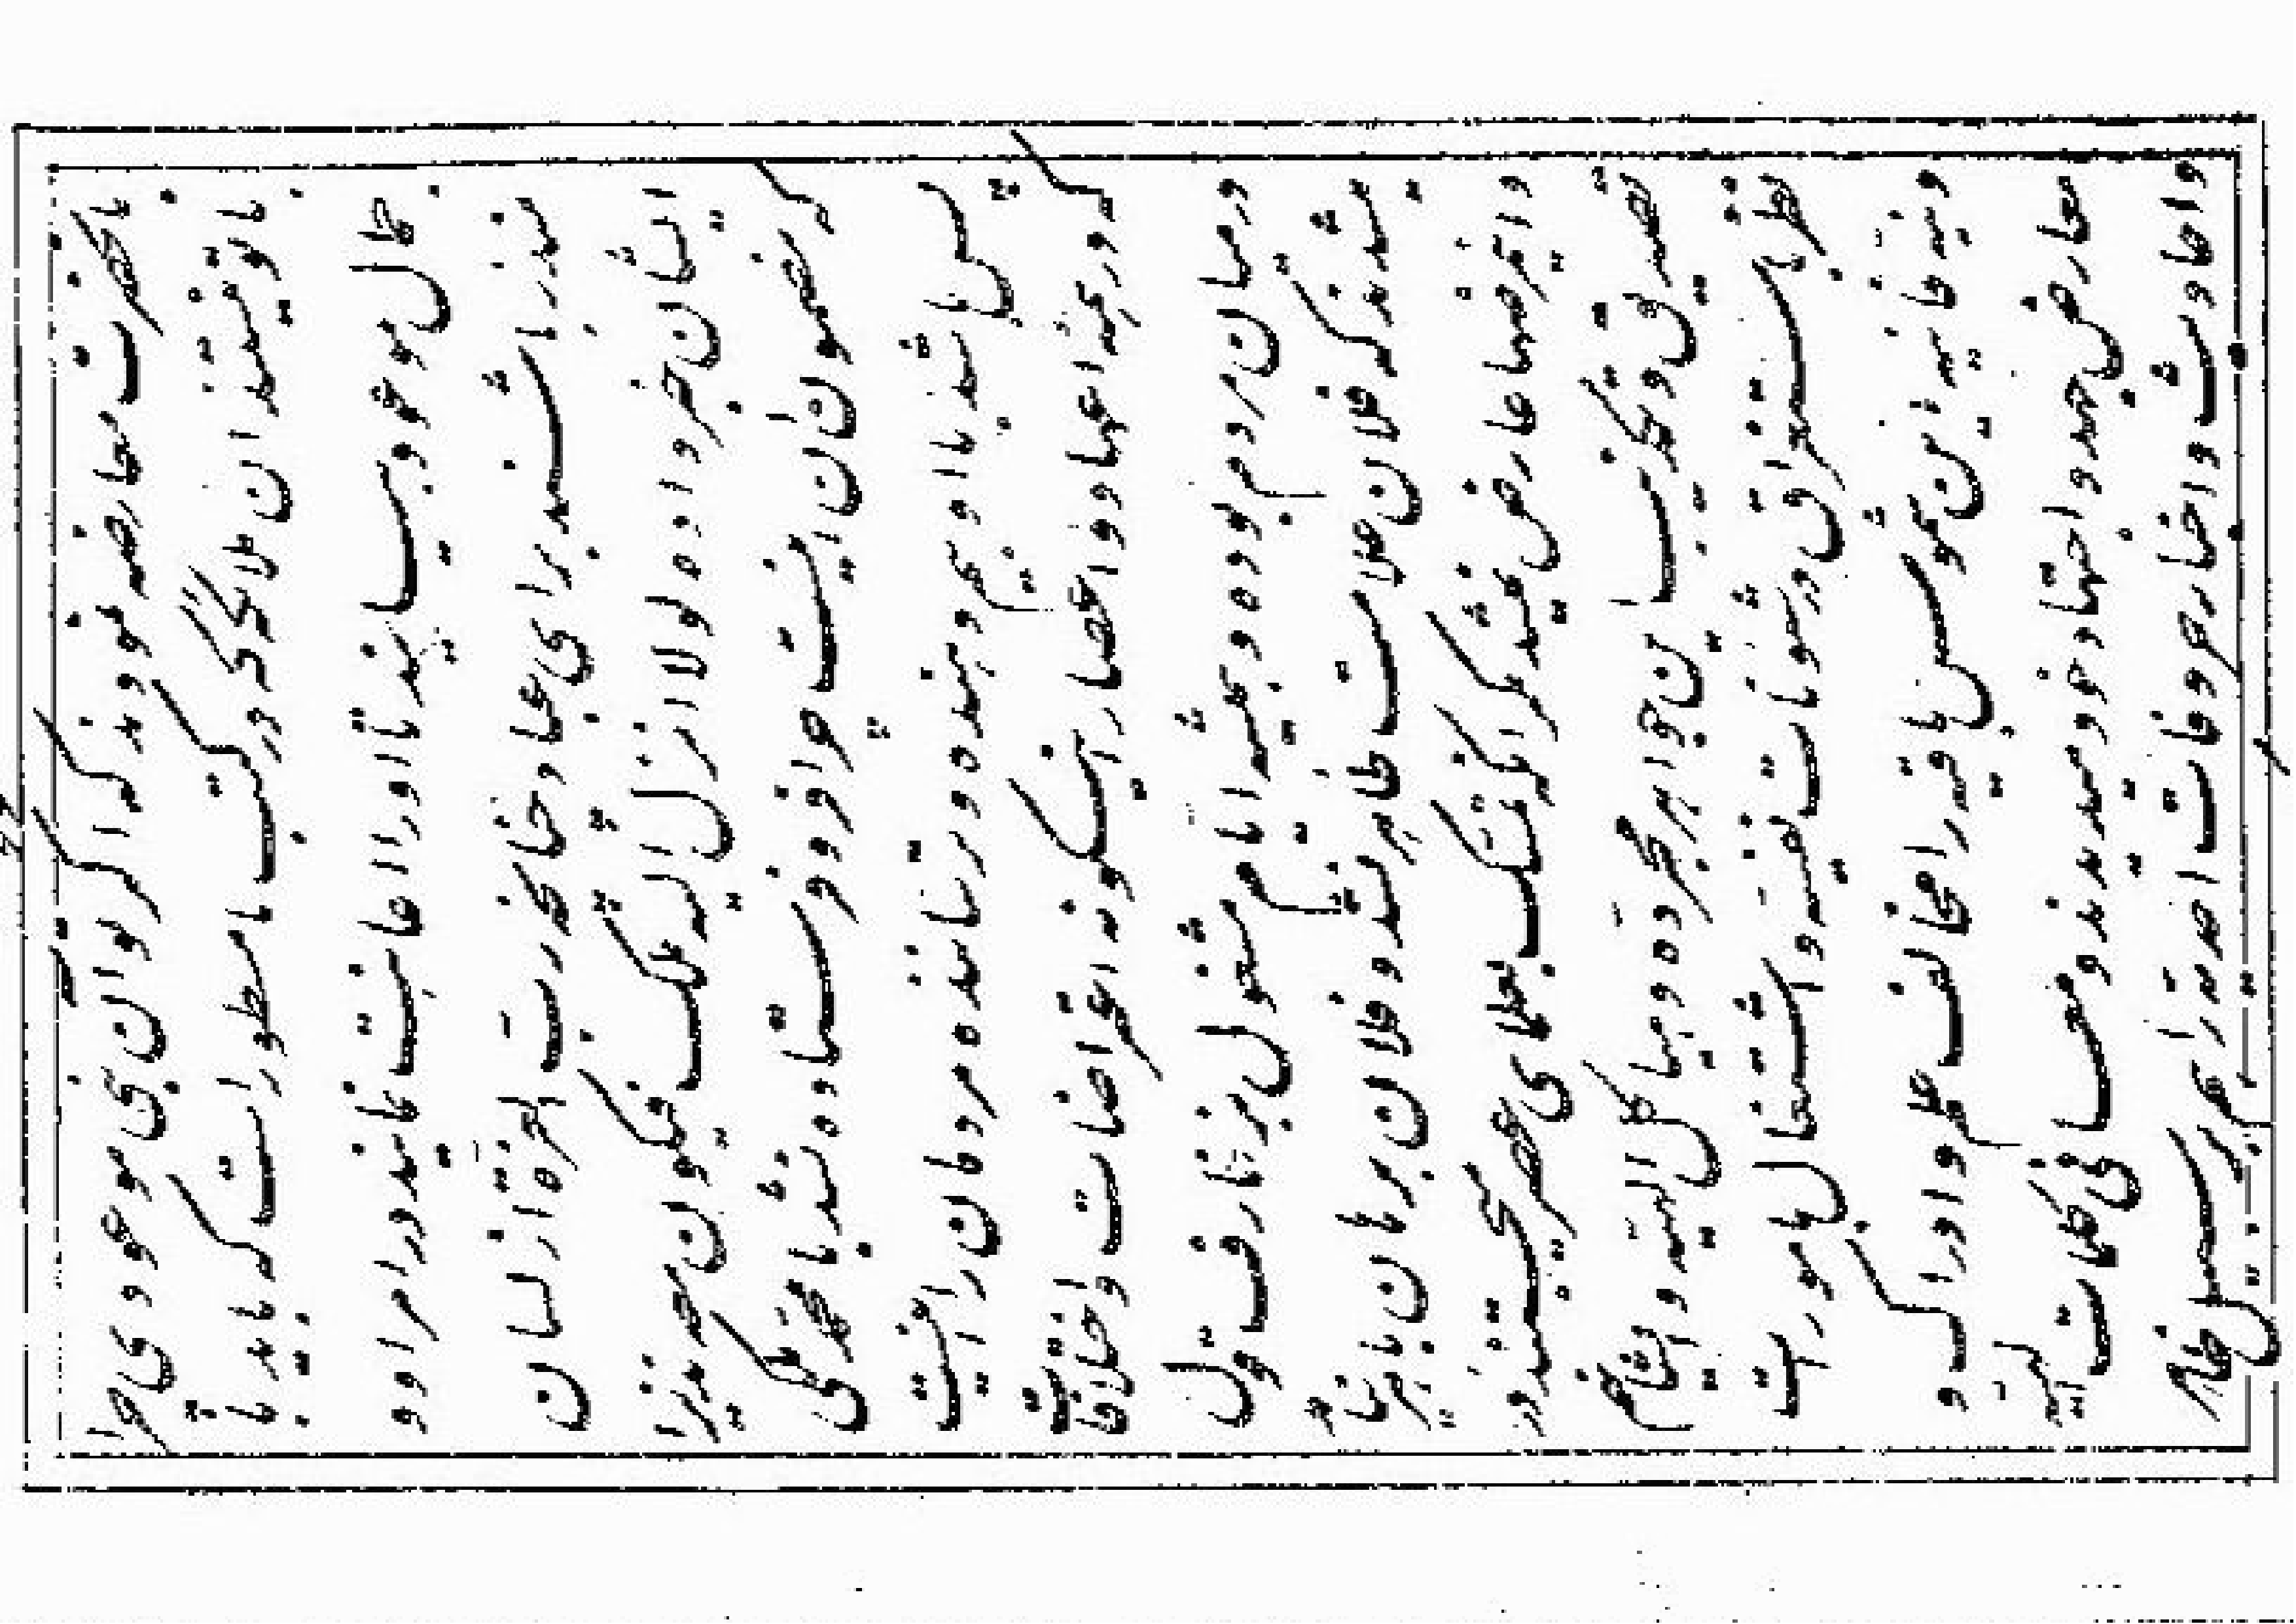 بآنحضرت معارضه نمودند که اگر تو آن نبی موعودی چرا
با تو نیستند آن ملائکه که در کتب ما مسطور است که باید با
جمال موعود بیایند تا او را اعانت نمایند در امر او و
منذر باشند برای عباد چنانچه رب العزه از لسان
ایشان خبر داده لولا انزل الیه ملک فیکون معه نذیرا
که مضمون آن این است چرا فرو فرستاده نشد با محمد ملکی
پس باشد با او بیم دهنده و ترساننده مردمان را این است
که در همه اعهاد و اعصار اینگونه اعتراضات و اختلافات
در میان مردم بوده و همیشه ایام مشغول بزخارف قول
میشدند که فلان علامت ظاهر نشد و فلان برهان باهر نیامد
و این مرضها عارض نمیشد مگر آنکه تمسک بعلمای عصر میجستند در
تصدیق و تکذیب این جواهر مجرده و هیاکل الهیه و ایشان هم
نظر باستغراق در شئونات نفسیه و اشتغال بامورات
دنیه فانیه این شموس باقیه را مخالف علم و ادراک و
معارض جهد و اجتهاد خود میدیدند و معانی کلمات الهیه
و احادیث و اخبار حروفات احدیه را هم بر سبیل ظاهر